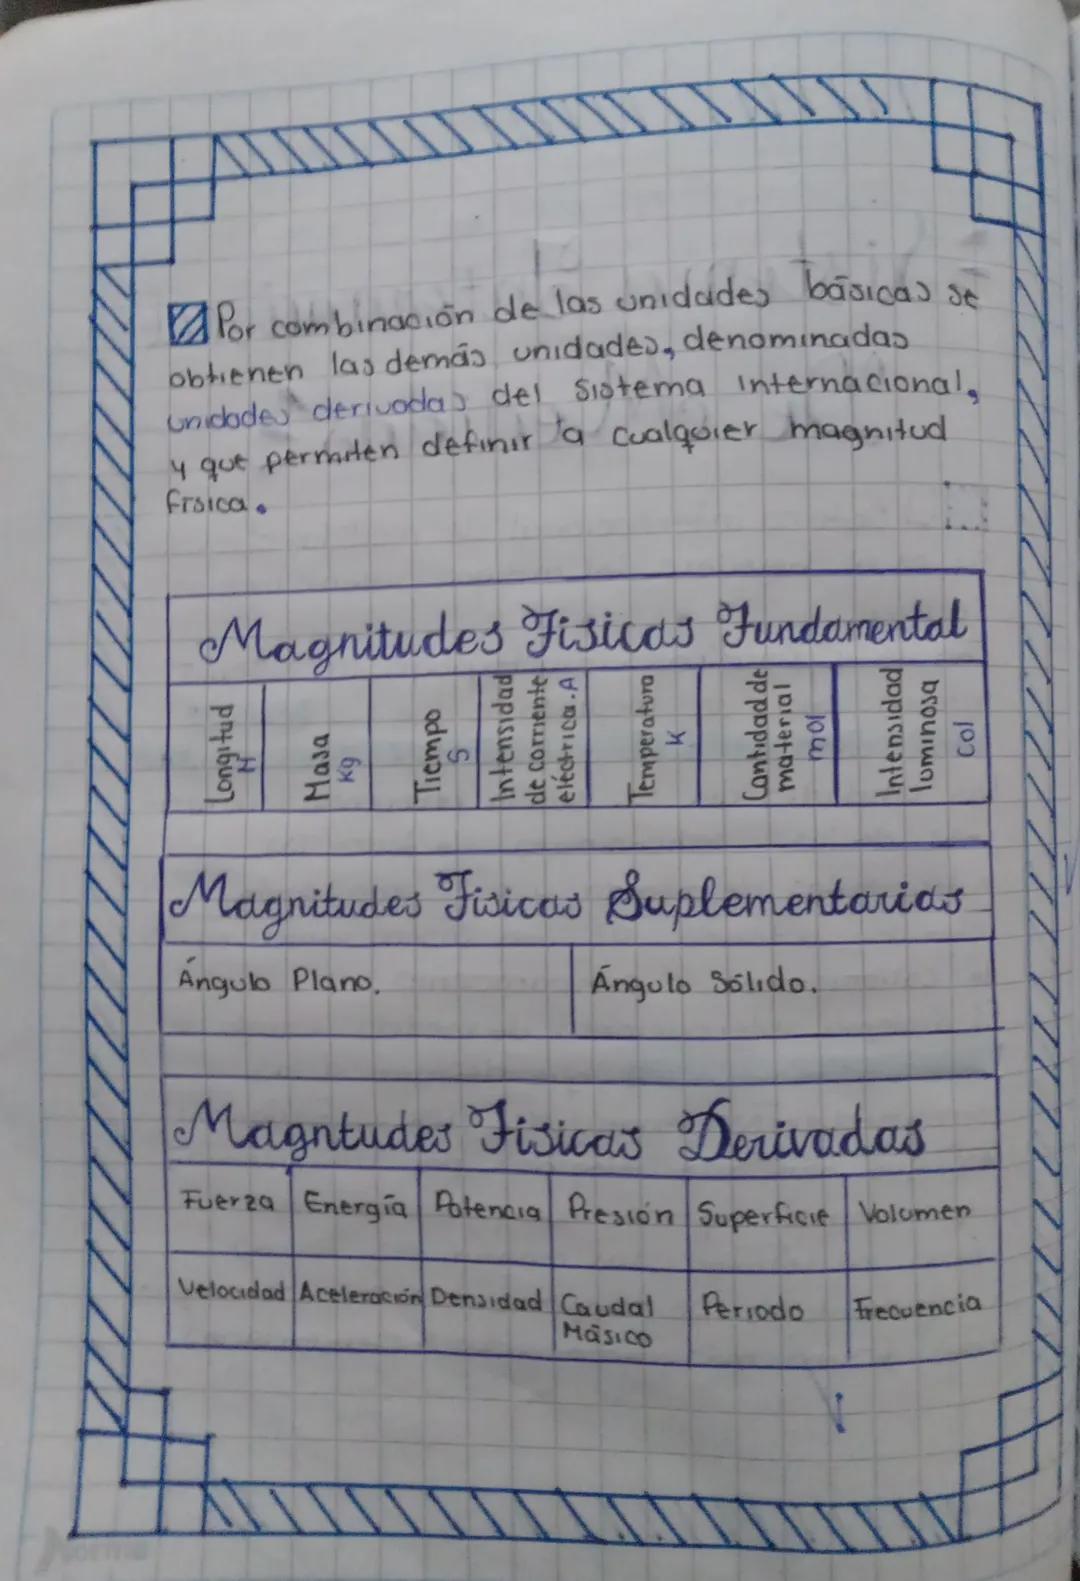 Por combinación de las unidades básicas se
obtienen las demás unidades, denominadas
unidades derivadas del Sistema Internacional,
y que permiten definir a cualquier magnitud
física.
Magnitudes Fisicas Fundamental
Longitud
M
Masa
Kg
Tiempo
S
Intensidad
de corriente
eléctrica. A
Temperatura
K
Cantidad de
material
mol
Intensidad
luminosa
Col
Magnitudes Fisicas Suplementarias
Ángulo Plano.
Ángulo Sólido.
Magntudes Fisicas Derivadas
Fuerza Energía Potencia Presión Superficie Volumen
Velocidad Aceleración Densidad Caudal Periodo Frecuencia
Másico